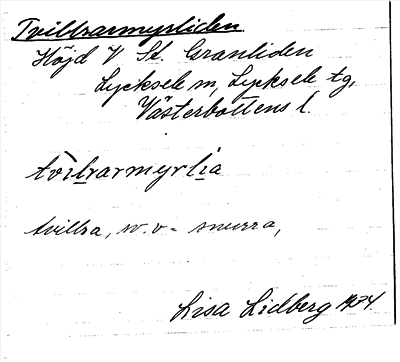 Tvillrarmyrliden
Höjd V St. Granliden
Lycksele sn, Lycksele tg,
Västerbottens l.
tvìlrarmyrlia
tvillra, sv. v = snurra,
Lisa Lidberg 1934